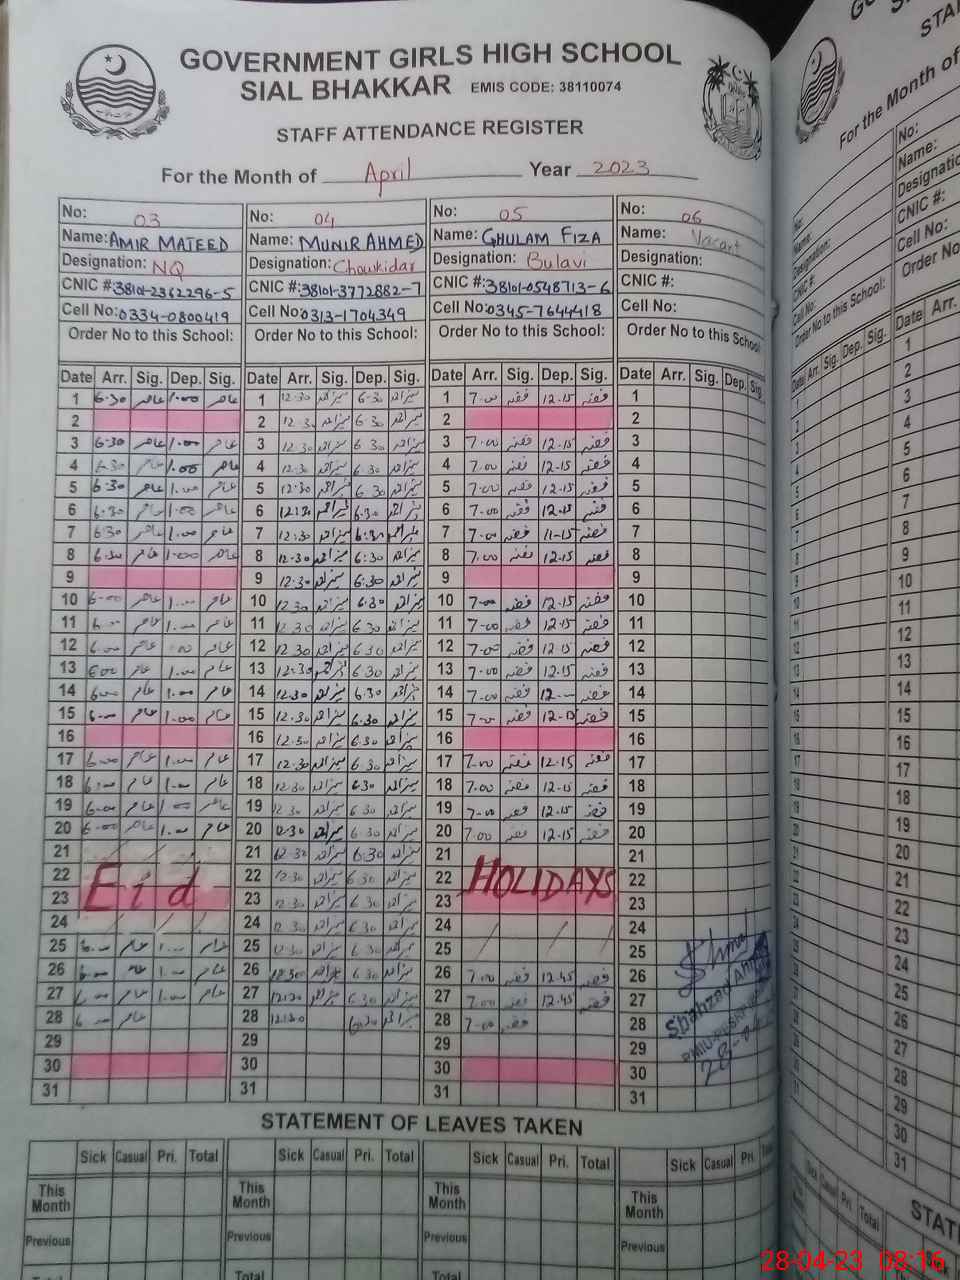 GOVERNMENT GIRLS HIGH SCHOOL
SIAL BHAKKAR EMIS CODE: 38110074
STAFF ATTENDANCE REGISTER
For the Month of April Year 2023
No: 03 No: 04 No: 05 No: 06
Name: AMIR MAJEED Name: MUNIR AHMED Name: GHULAM FIZA Name: Vacant
Designation: NQ Designation: Chowkidar Designation: Bulavi Designation:
CNIC #: 38101-2362296-5 CNIC #: 38101-3772882-7 CNIC #: 38101-0548713-6 CNIC #:
Cell No: 0334-0800419 Cell No: 0313-1704349 Cell No: 0345-7644418 Cell No:
Order No to this School: Order No to this School: Order No to this School: Order No to this School:
Date Arr. Sig. Dep. Sig. Date Arr. Sig. Dep. Sig. Date Arr. Sig. Dep. Sig. Date Arr. Sig. Dep. Sig.
1 6.30 عامر 1.00 عامر 1 12.30 6.30 1 7.00 فضہ 12.15 فضہ 1
2 2 12.30 6.30 2 2
3 6.30 عامر 1.00 عامر 3 12.30 6.30 3 7.00 فضہ 12.15 فضہ 3
4 6.30 عامر 1.00 عامر 4 12.30 6.30 4 7.00 فضہ 12.15 فضہ 4
5 6.30 عامر 1.00 عامر 5 12.30 6.30 5 7.00 فضہ 12.15 فضہ 5
6 6.30 عامر 1.00 عامر 6 12.30 6.30 6 7.00 فضہ 12.15 فضہ 6
7 6.30 عامر 1.00 عامر 7 12.30 6.30 7 7.00 فضہ 11.15 فضہ 7
8 6.30 عامر 1.00 عامر 8 12.30 6.30 8 7.00 فضہ 12.15 فضہ 8
9 9 12.30 6.30 9 9
10 6.00 عامر 1.00 عامر 10 12.30 6.30 10 7.00 فضہ 12.15 فضہ 10
11 6.00 عامر 1.00 عامر 11 12.30 6.30 11 7.00 فضہ 12.15 فضہ 11
12 6.00 عامر عامر 12 12.30 6.30 12 7.00 فضہ 12.15 فضہ 12
13 6.00 عامر 1.00 عامر 13 12.30 6.30 13 7.00 فضہ 12.15 فضہ 13
14 6.00 عامر 1.00 عامر 14 12.30 6.30 14 7.00 فضہ فضہ 14
15 6.00 عامر 1.00 عامر 15 12.30 6.30 15 7.00 فضہ 12.15 فضہ 15
16 16 12.30 6.30 16 16
17 6.00 عامر 1.00 عامر 17 12.30 6.30 17 7.00 فضہ 12.15 فضہ 17
18 6.00 عامر 1.00 عامر 18 12.30 6.30 18 7.00 فضہ 12.15 فضہ 18
19 6.00 عامر 1.00 عامر 19 12.30 6.30 19 7.00 فضہ 12.15 فضہ 19
20 6.00 عامر 1.00 عامر 20 12.30 6.30 20 7.00 فضہ 12.15 فضہ 20
21 21 12.30 6.30 21 21
22 Eid 22 12.30 6.30 22 HOLIDAYS 22
23 23 12.30 6.30 23 23
24 24 12.30 6.30 24 24
25 6.00 عامر 1.00 عامر 25 12.30 6.30 25 25
26 6.00 عامر 1.00 عامر 26 12.30 6.30 26 7.00 فضہ 12.45 فضہ 26
27 6.00 عامر 1.00 عامر 27 12.30 6.30 27 7.00 فضہ 12.45 فضہ 27
28 6.00 عامر 28 12.30 6.30 28 7.00 فضہ 28
29 29 29 29
30 30 30 30
31 31 31 31
Shahzad
STATEMENT OF LEAVES TAKEN
Sick Casual Pri. Total Sick Casual Pri. Total Sick Casual Pri. Total Sick Casual Pri.
This Month This Month This Month This Month
Previous Previous Previous Previous
Total
For the Month of
No: No:
Name: Name:
Designation: Designation
CNIC #: CNIC #:
Cell No: Cell No:
Order No to this School: Order No
Date Arr. Sig. Dep. Sig. Date Arr.
1
2
3
4
5
6
7
8
9
10
11
12
13
14
15
16
17
18
19
20
21
22
23
24
25
26
27
28
29
30
31
Sick Casual Pri. Total
This Month
Previous
28-04-23 08:16